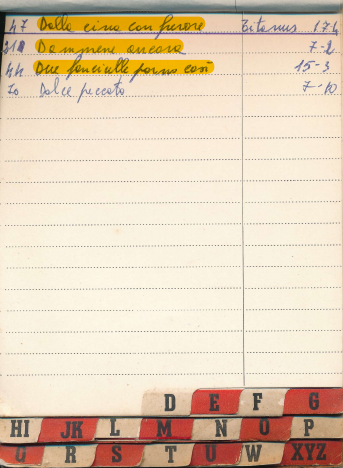 47 Dalla cina con furore Titanus 174
210 Dammene ancora 7-2
44 Due fanciulle fanno così 15-3
70 Dolce peccato 7-10
D E F G
HI JK L M N O P
Q R S T U W XYZ